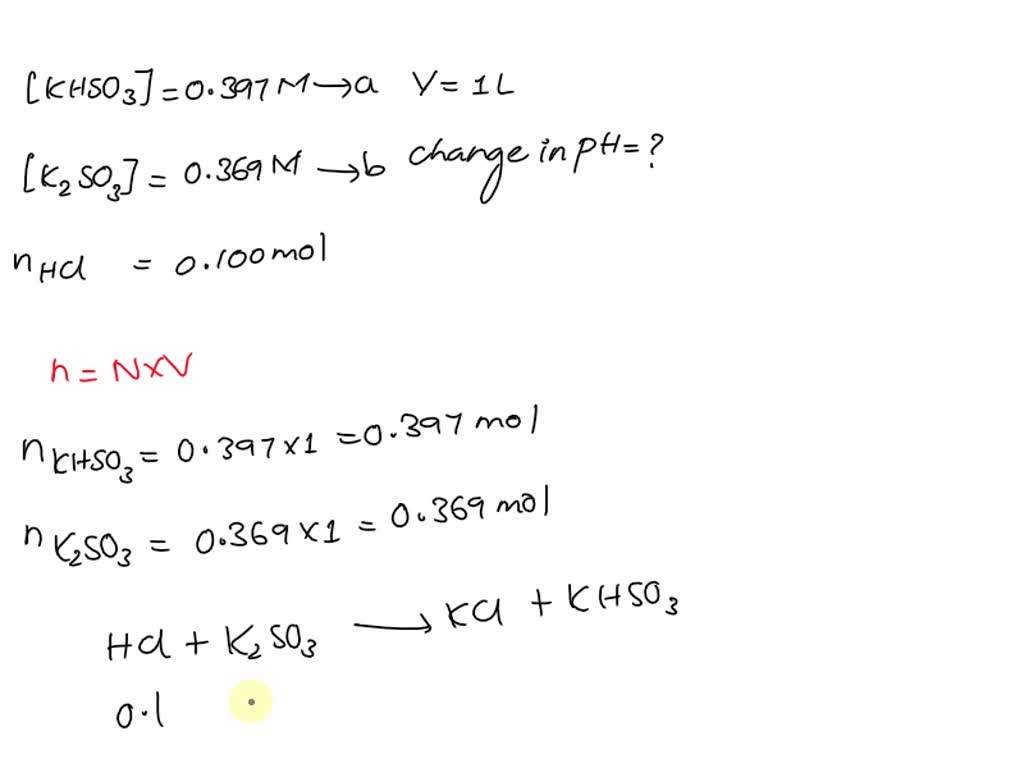 [KHSO₃] = 0.397 M → a V = 1 L
[K₂SO₃] = 0.369 M → b change in pH = ?
nHCl = 0.100 mol
n = N×V
nKHSO₃ = 0.397 × 1 = 0.397 mol
nK₂SO₃ = 0.369 × 1 = 0.369 mol
HCl + K₂SO₃ → KCl + KHSO₃
0.1